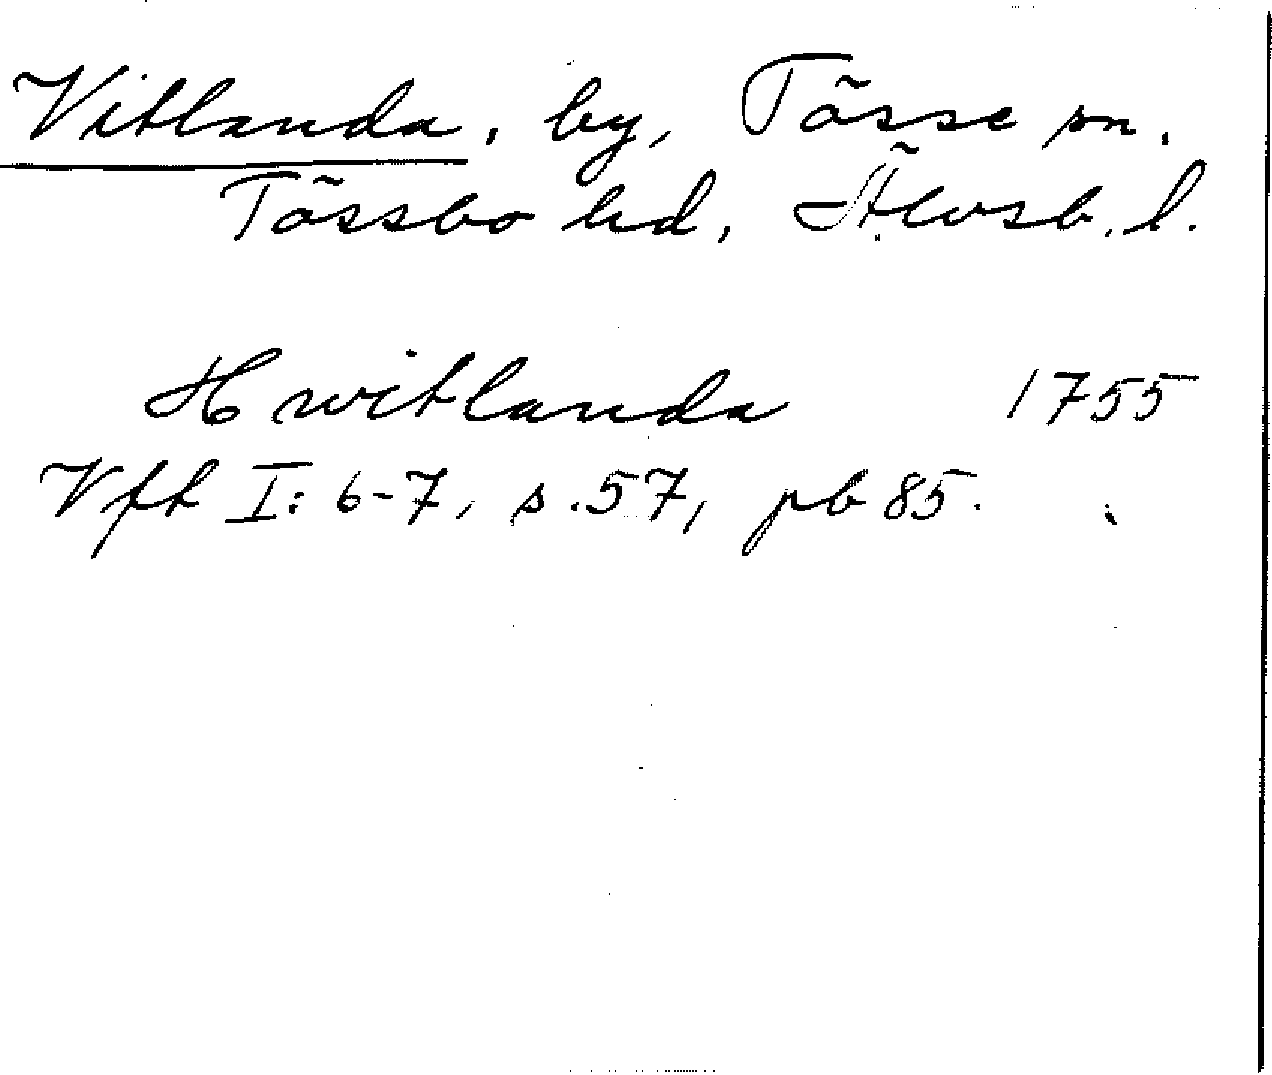 Vitlanda, by, Tösse sn.
Tössbo hd, Älvsb. l.
Hwitlanda 1755
Vft I: 6-7, s. 57, pb 85.